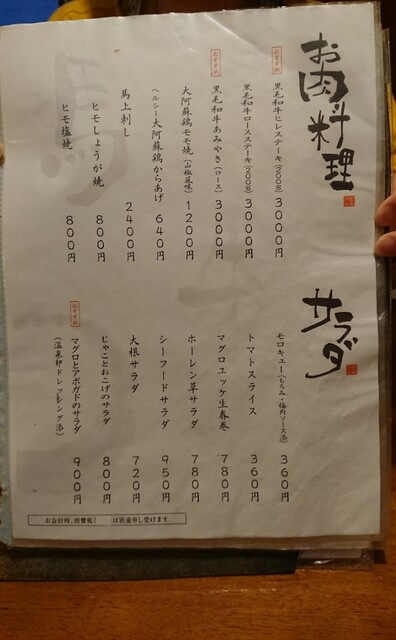 お肉料理
おすすめ
黒毛和牛ヒレステーキ(200g) 3000円
黒毛和牛ロースステーキ(200g) 3000円
おすすめ
黒毛和牛あみやき(ロース) 3000円
大阿蘇鶏モモ焼(山椒風味) 1200円
ヘルシー大阿蘇鶏からあげ 640円
馬上刺し 2400円
ヒモしょうが焼 800円
ヒモ塩焼 800円
サラダ
モロキュー(もろみ・梅肉ソース添) 360円
トマトスライス 360円
マグロユッケ生春巻 780円
ホーレン草サラダ 780円
シーフードサラダ 950円
大根サラダ 720円
じゃことおこげのサラダ 800円
おすすめ
マグロとアボガドのサラダ
(温泉卵ドレッシング添) 900円
お会計時、消費税( は別途申し受けます